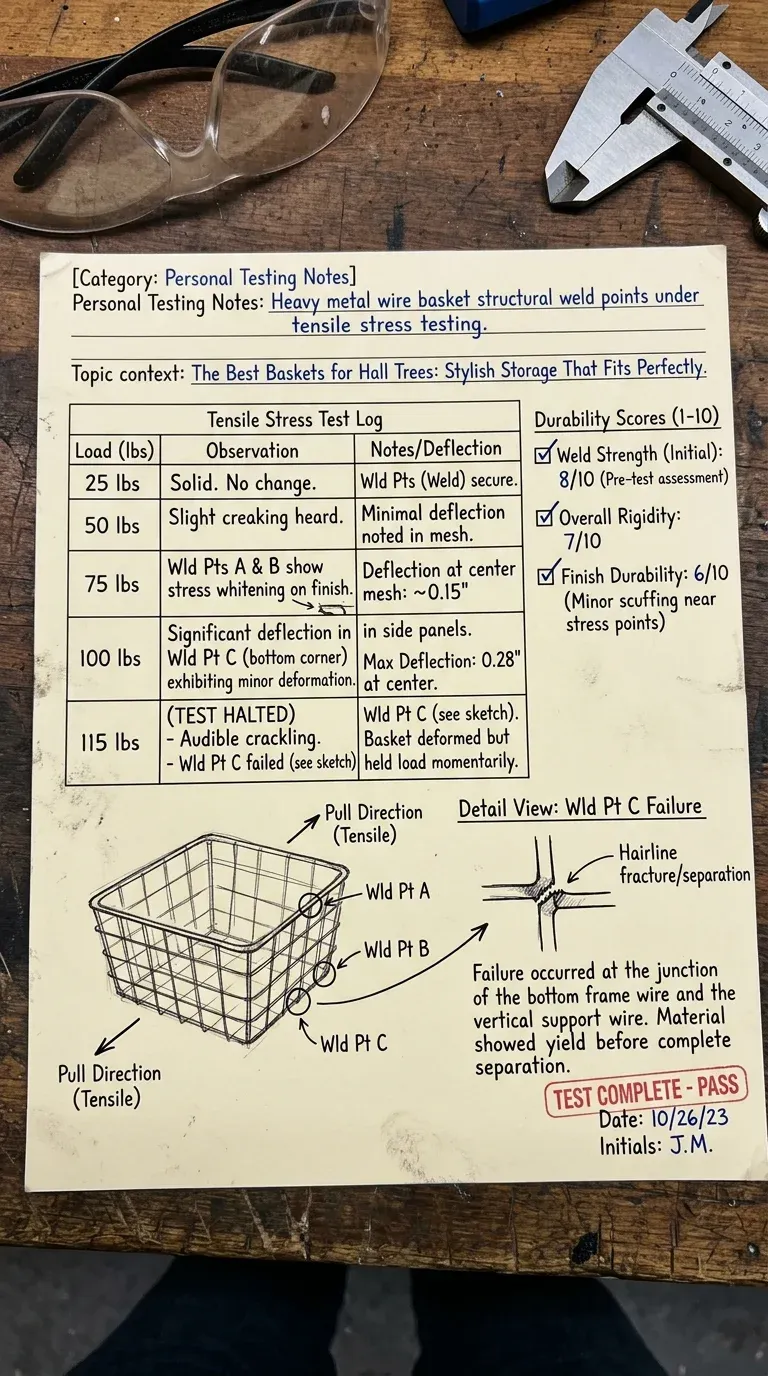 [Category: Personal Testing Notes]
Personal Testing Notes: Heavy metal wire basket structural weld points under
tensile stress testing.
Topic context: The Best Baskets for Hall Trees: Stylish Storage That Fits Perfectly.
Tensile Stress Test Log
Load (lbs)
Observation
Notes/Deflection
25 lbs
Solid. No change.
Wld Pts (Weld) secure.
50 lbs
Slight creaking heard.
Minimal deflection
noted in mesh.
75 lbs
Wld Pts A & B show
stress whitening on finish.
Deflection at center
mesh: ~0.15"
100 lbs
Significant deflection in
Wld Pt C (bottom corner)
exhibiting minor deformation.
in side panels.
Max Deflection: 0.28"
at center.
115 lbs
(TEST HALTED)
- Audible crackling.
- Wld Pt C failed (see sketch)
Wld Pt C (see sketch).
Basket deformed but
held load momentarily.
Durability Scores (1-10)
Weld Strength (Initial):
8/10 (Pre-test assessment)
Overall Rigidity:
7/10
Finish Durability: 6/10
(Minor scuffing near
stress points)
Pull Direction
(Tensile)
Wld Pt A
Wld Pt B
Wld Pt C
Pull Direction
(Tensile)
Detail View: Wld Pt C Failure
Hairline
fracture/separation
Failure occurred at the junction
of the bottom frame wire and the
vertical support wire. Material
showed yield before complete
separation.
TEST COMPLETE - PASS
Date: 10/26/23
Initials: J.M.